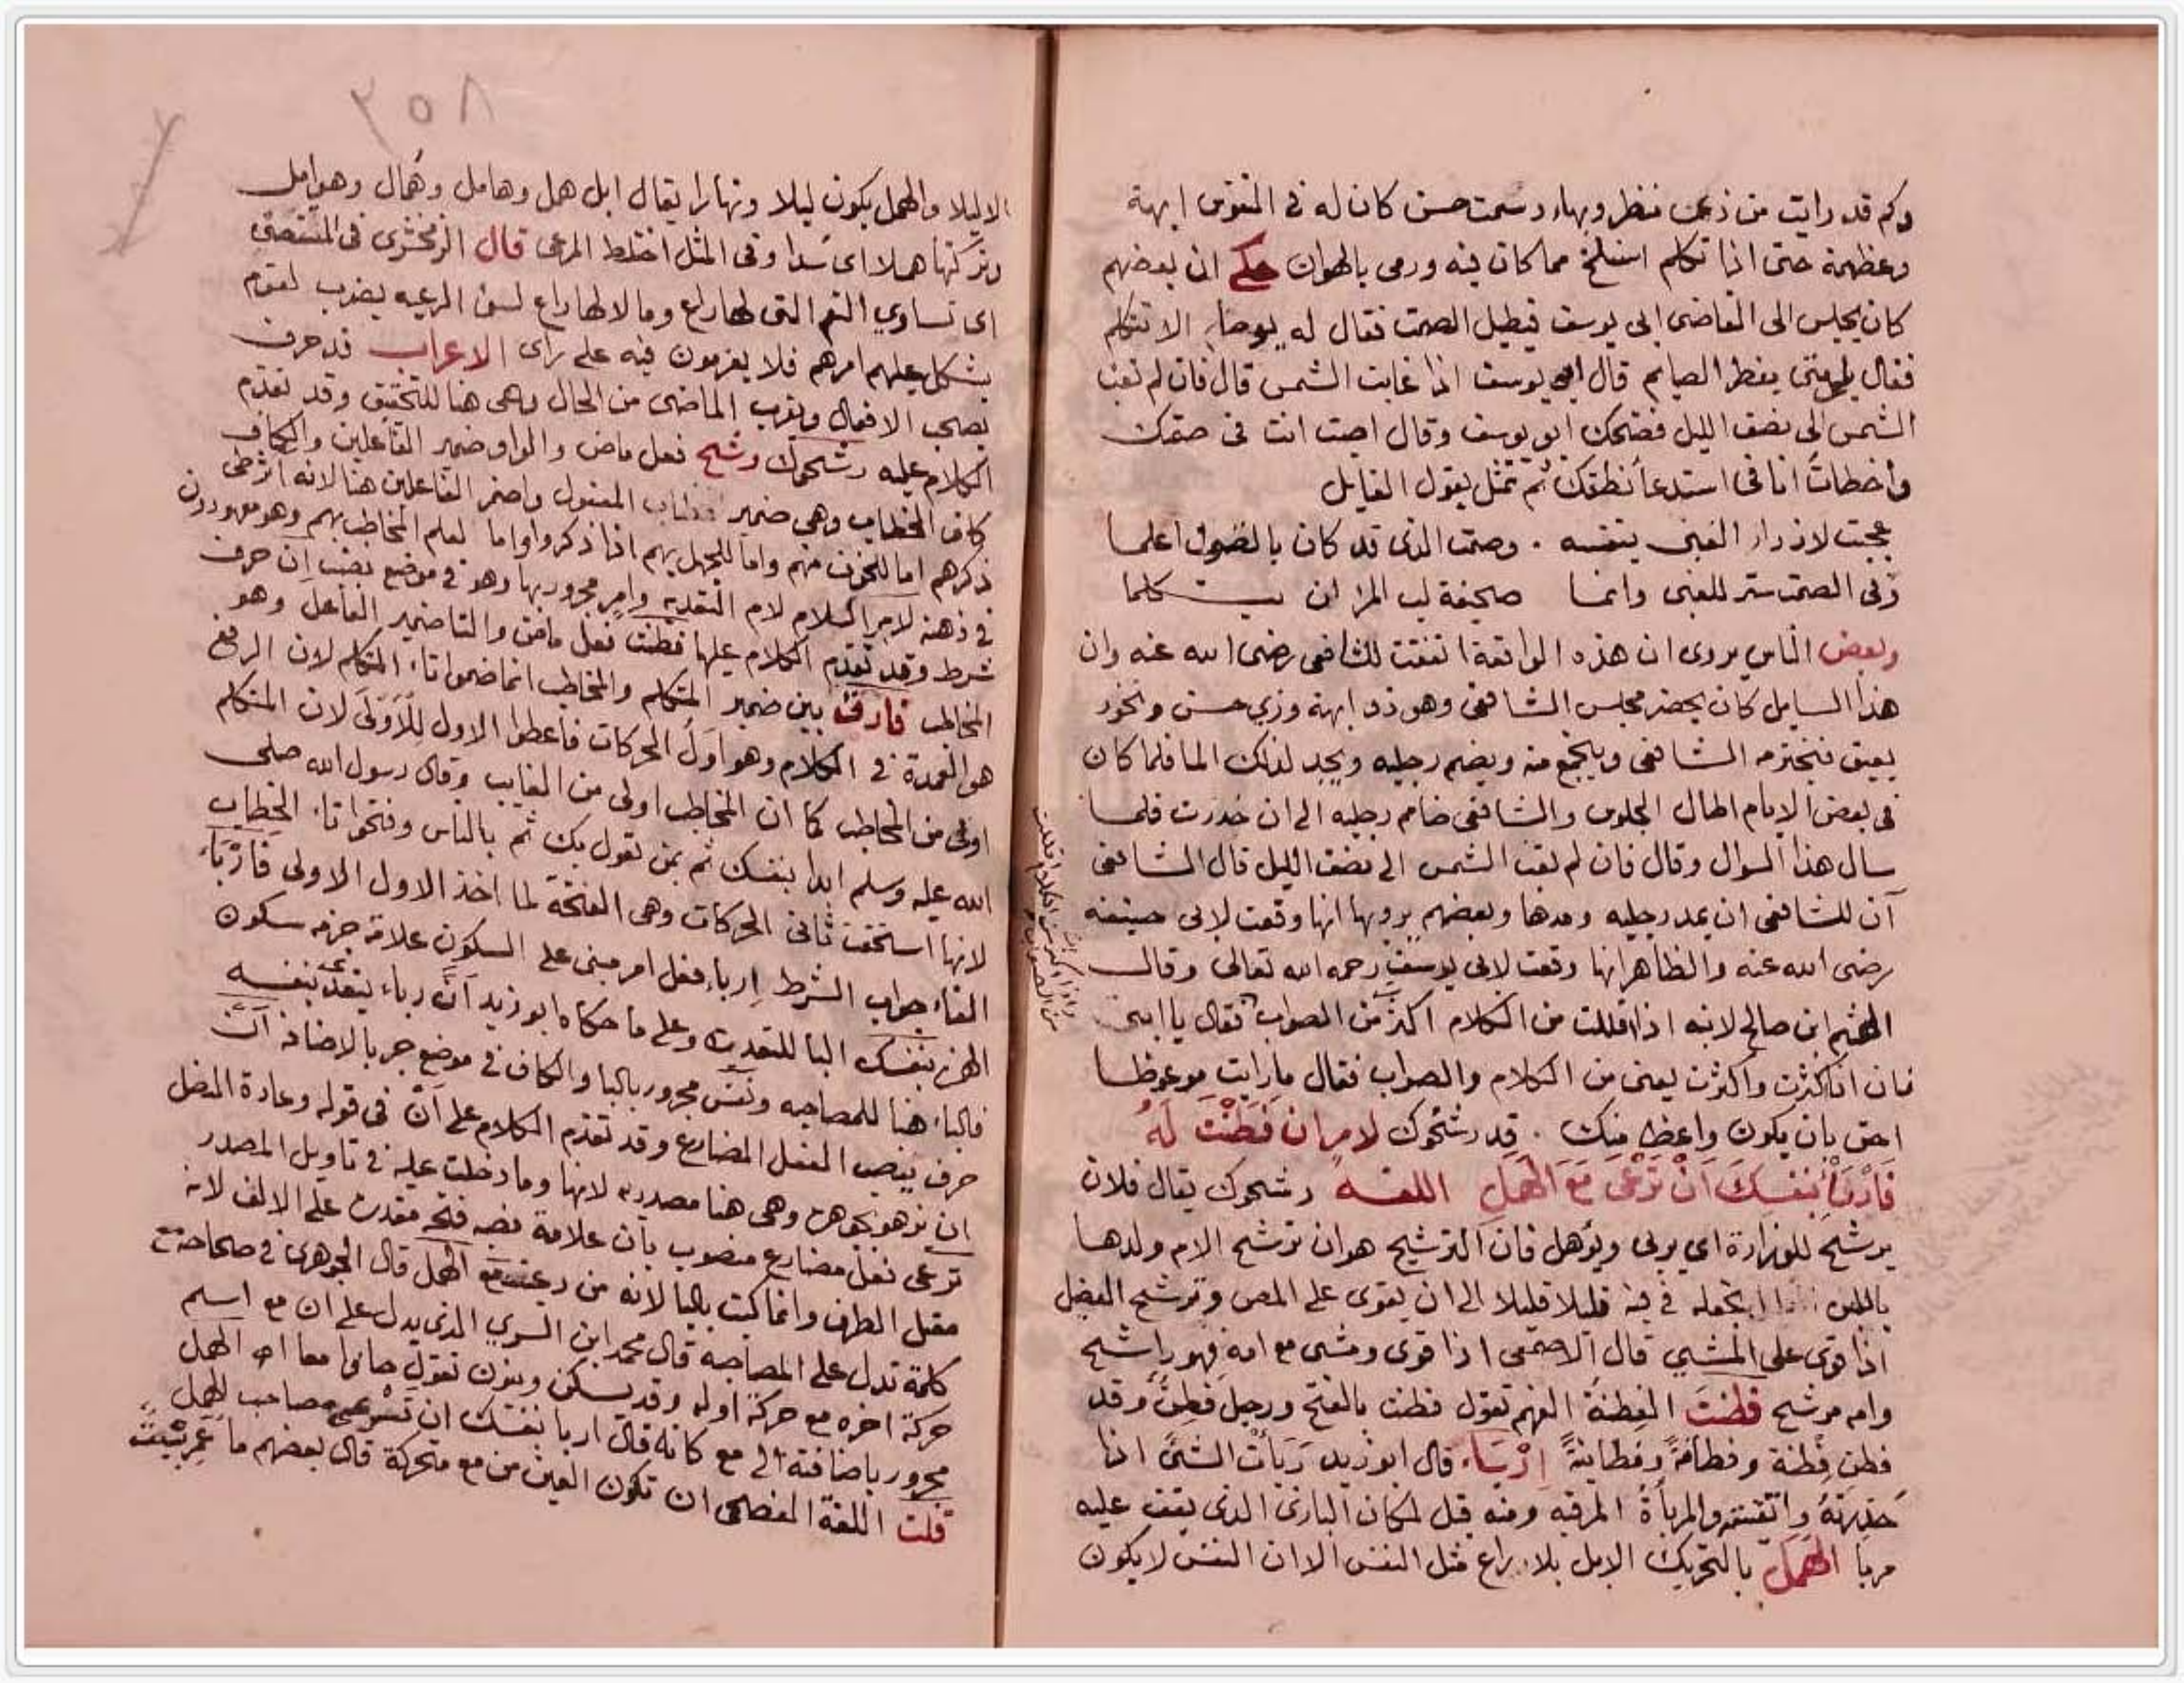 وكم قد رايت من ذي منظر وبهاء وسمت حسن كان له في النفوس ابهة
وعظمة حتى اذا تكلم انسلخ مما كان فيه ورمى بالهوان حكى ان بعضهم
كان يجلس الى القاضى ابى يوسف فيطيل الصمت فقال له يوما الا تتكلم
فقال بلى متى يفطر الصايم قال ابو يوسف اذا غابت الشمس قال فان لم تغب
الشمس الى نصف الليل فضحك ابو يوسف وقال اصبت انت فى صمتك
واخطات انا فى استدعا نطقك ثم تمثل بقول القايل
عجبت لازدراء الغبى بنفسه . وصمت الذى قد كان بالقول اعلما
وفى الصمت ستر للغبى وانما صحيفة لب المرء ان يتكلما
وبعض الناس يروى ان هذه الواقعة اتفقت للشافعى رضى الله عنه وان
هذا السايل كان يحضر مجلس الشافعى وهو ذو ابهة وزي حسن وبخور
يعبق فيحترمه الشافعى ويجمع منه ويضم رجليه ويجد لذلك الما فلما كان
فى بعض الايام اطال الجلوس والشافعى ضامم رجليه الى ان خدرت فلما
سال هذا السوال وقال فان لم تغب الشمس الى نصف الليل قال الشافعى
آن للشافعى ان يمد رجليه ومدها وبعضهم يرويها انها وقعت لابى حنيفه
رضى الله عنه والظاهر انها وقعت لابى يوسف رحمه الله تعالى وقال
الهيثم ابن صالح لابنه اذا اقللت من الكلام اكثرت من الصواب فقال يا ابتى
فان انا كثرت واكثرت يعنى من الكلام والصواب فقال ما رايت موعوظا
احق بان يكون واعظا منك . قد رشحوك لامر ان فطنت له
فاربأ بنفسك ان ترعى مع الهمل اللغه رشحوك يقال فلان
يرشح للوزارة اى يربى ويؤهل فان الترشيح هو ان ترشح الام ولدها
باللبن تجعله فى فيه قليلا قليلا الى ان يقوى على المص وترشح الفصيل
اذا قوى على المشي قال الاصمعى اذا قوى ومشى مع امه فهو راشح
وامه مرشح فطنت الفطنة الفهم تقول فطنت بالفتح ورجل فطن وقد
فطن فطنة وفطانة وفطانية اربأ قال ابو زيد ربأت الشئ اذا
حذرته واتقيته والمربأة المرقبه ومنه قيل لمكان البازى الذى يقف عليه
مربا الهمل بالتحريك الابل بلا راع مثل النفش الا ان النفش لا يكون
واذا اكثرت من الكلام اقللت من الصواب
٢٥٨
الا ليلا والهمل يكون ليلا ونهارا يقال ابل همل وهامل وهمال وهوامل
وتركتها هملا اى سدا وفى المثل اختلط المرعى قال الزمخشرى فى المستقصى
اى تساوي النعم التى لها راع وما لا لها راع لسوء الرعيه يضرب لقوم
يشكل عليهم امرهم فلا يعزمون فيه على راى الاعراب قد حرف
يصحب الافعال ويقرب الماضى من الحال وهى هنا للتحقيق وقد تقدم
الكلام عليه رشحوك رشح فعل ماض والواو ضمير الفاعلين والكاف
كاف الخطاب وهى ضمير المفعول واضمر الفاعلين هنا لانه
ذكرهم اما للخوف منهم واما للجهل بهم اذا ذكروا واما لعلم المخاطب بهم وهو معهودون
فى ذهنه لامر اللام لام التعديه وامر مجرور بها وهو فى موضع نصب إن حرف
شرط وقد تقدم الكلام عليها فطنت فعل ماض والتا ضمير الفاعل وهو
المخاطب فارق بين ضمير المتكلم والمخاطب انما ضموا تاء المتكلم لان الرفع
هو العمدة فى الكلام وهو اول الحركات فاعطوا الاول للاولى لان المتكلم
اولى من المخاطب كما ان المخاطب اولى من الغايب وقال رسول الله صلى
الله عليه وسلم ابدا بنفسك ثم بمن تعول بك ثم بالناس وفتحوا تاء الخطاب
لانها استحقت ثانى الحركات وهى الفتحة لما اخذ الاول الاولى فاربأ
الفاء جواب الشرط اربا فعل امر مبنى على السكون علامة جزمه سكون
الهمز بنفسك البا للتعدية وعلى ما حكاه ابو زيد ان رباء يتعدى بنفسه
فالباء هنا للمصاحبه ونفس مجرور بالبا والكاف فى موضع جر بالاضافة ان
حرف ينصب الفعل المضارع وقد تقدم الكلام على ان فى قوله وعادة النصل
ان يزهو بجوهره وهى هنا مصدريه لانها وما دخلت عليه فى تاويل المصدر
ترعى فعل مضارع منصوب بان علامة نصبه فتحة مقدرة على الالف لانه
معتل الطرف وانما كتبت باليا لانه من رعيت مع الهمل قال الجوهرى فى صحاحه مع
كلمة تدل على المصاحبه قال محمد ابن السري الذى يدل على ان مع اسم
حركة اخره مع حركة اوله وقد يسكن وينون تقول جاءوا معا اه الهمل
مجرور باضافته الى مع كانه قال اربا بنفسك ان تسرعى مصاحب الهمل
قلت اللغة الفصحى ان تكون العين من مع متحركة قال بعضهم ما